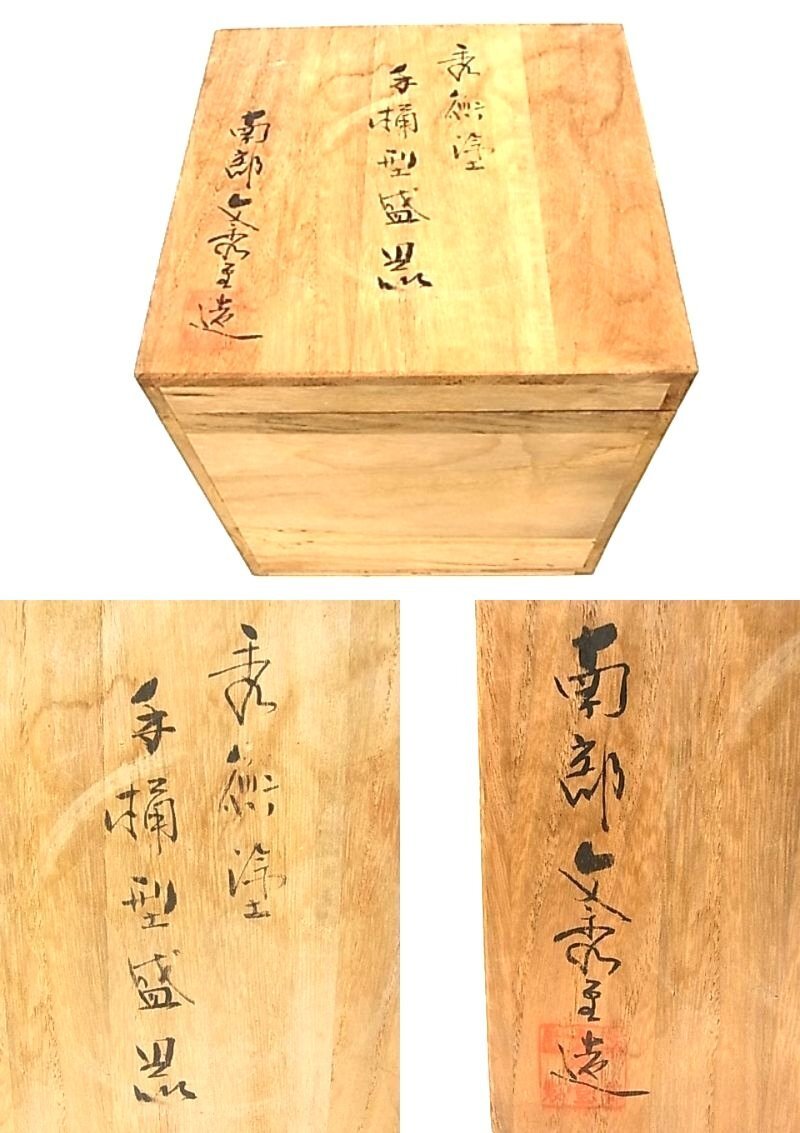 秀衡塗
手桶型盛器
南部 文秀堂 造
秀衡塗
手桶型盛器
南部 文秀堂 造